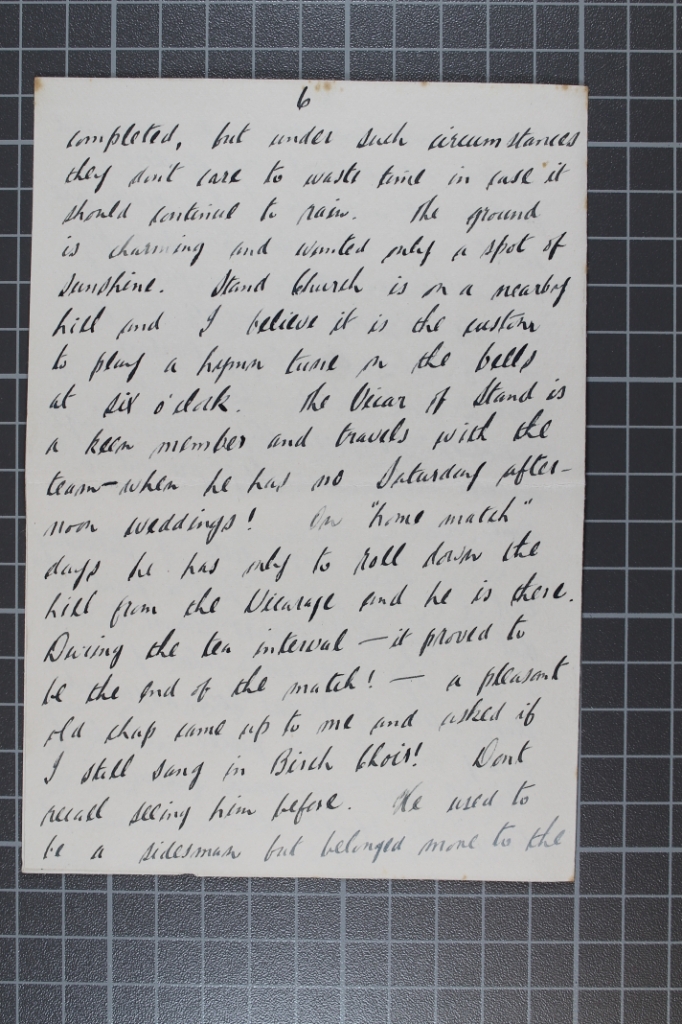 6
completed, but under such circumstances
they don't care to waste time in case it
should continue to rain. The ground
is charming and wanted only a spot of
sunshine. Stand Church is on a nearby
hill and I believe it is the custom
to play a hymn tune on the bells
at six o'clock. The Vicar of Stand is
a keen member and travels with the
team - when he has no Saturday after-
noon weddings! On "home match"
days he has only to roll down the
hill from the Vicarage and he is there.
During the tea interval — it proved to
be the end of the match! — a pleasant
old chap came up to me and asked if
I still sang in Birch Choir! Dont
recall seeing him before. He used to
be a sidesman but belonged more to the